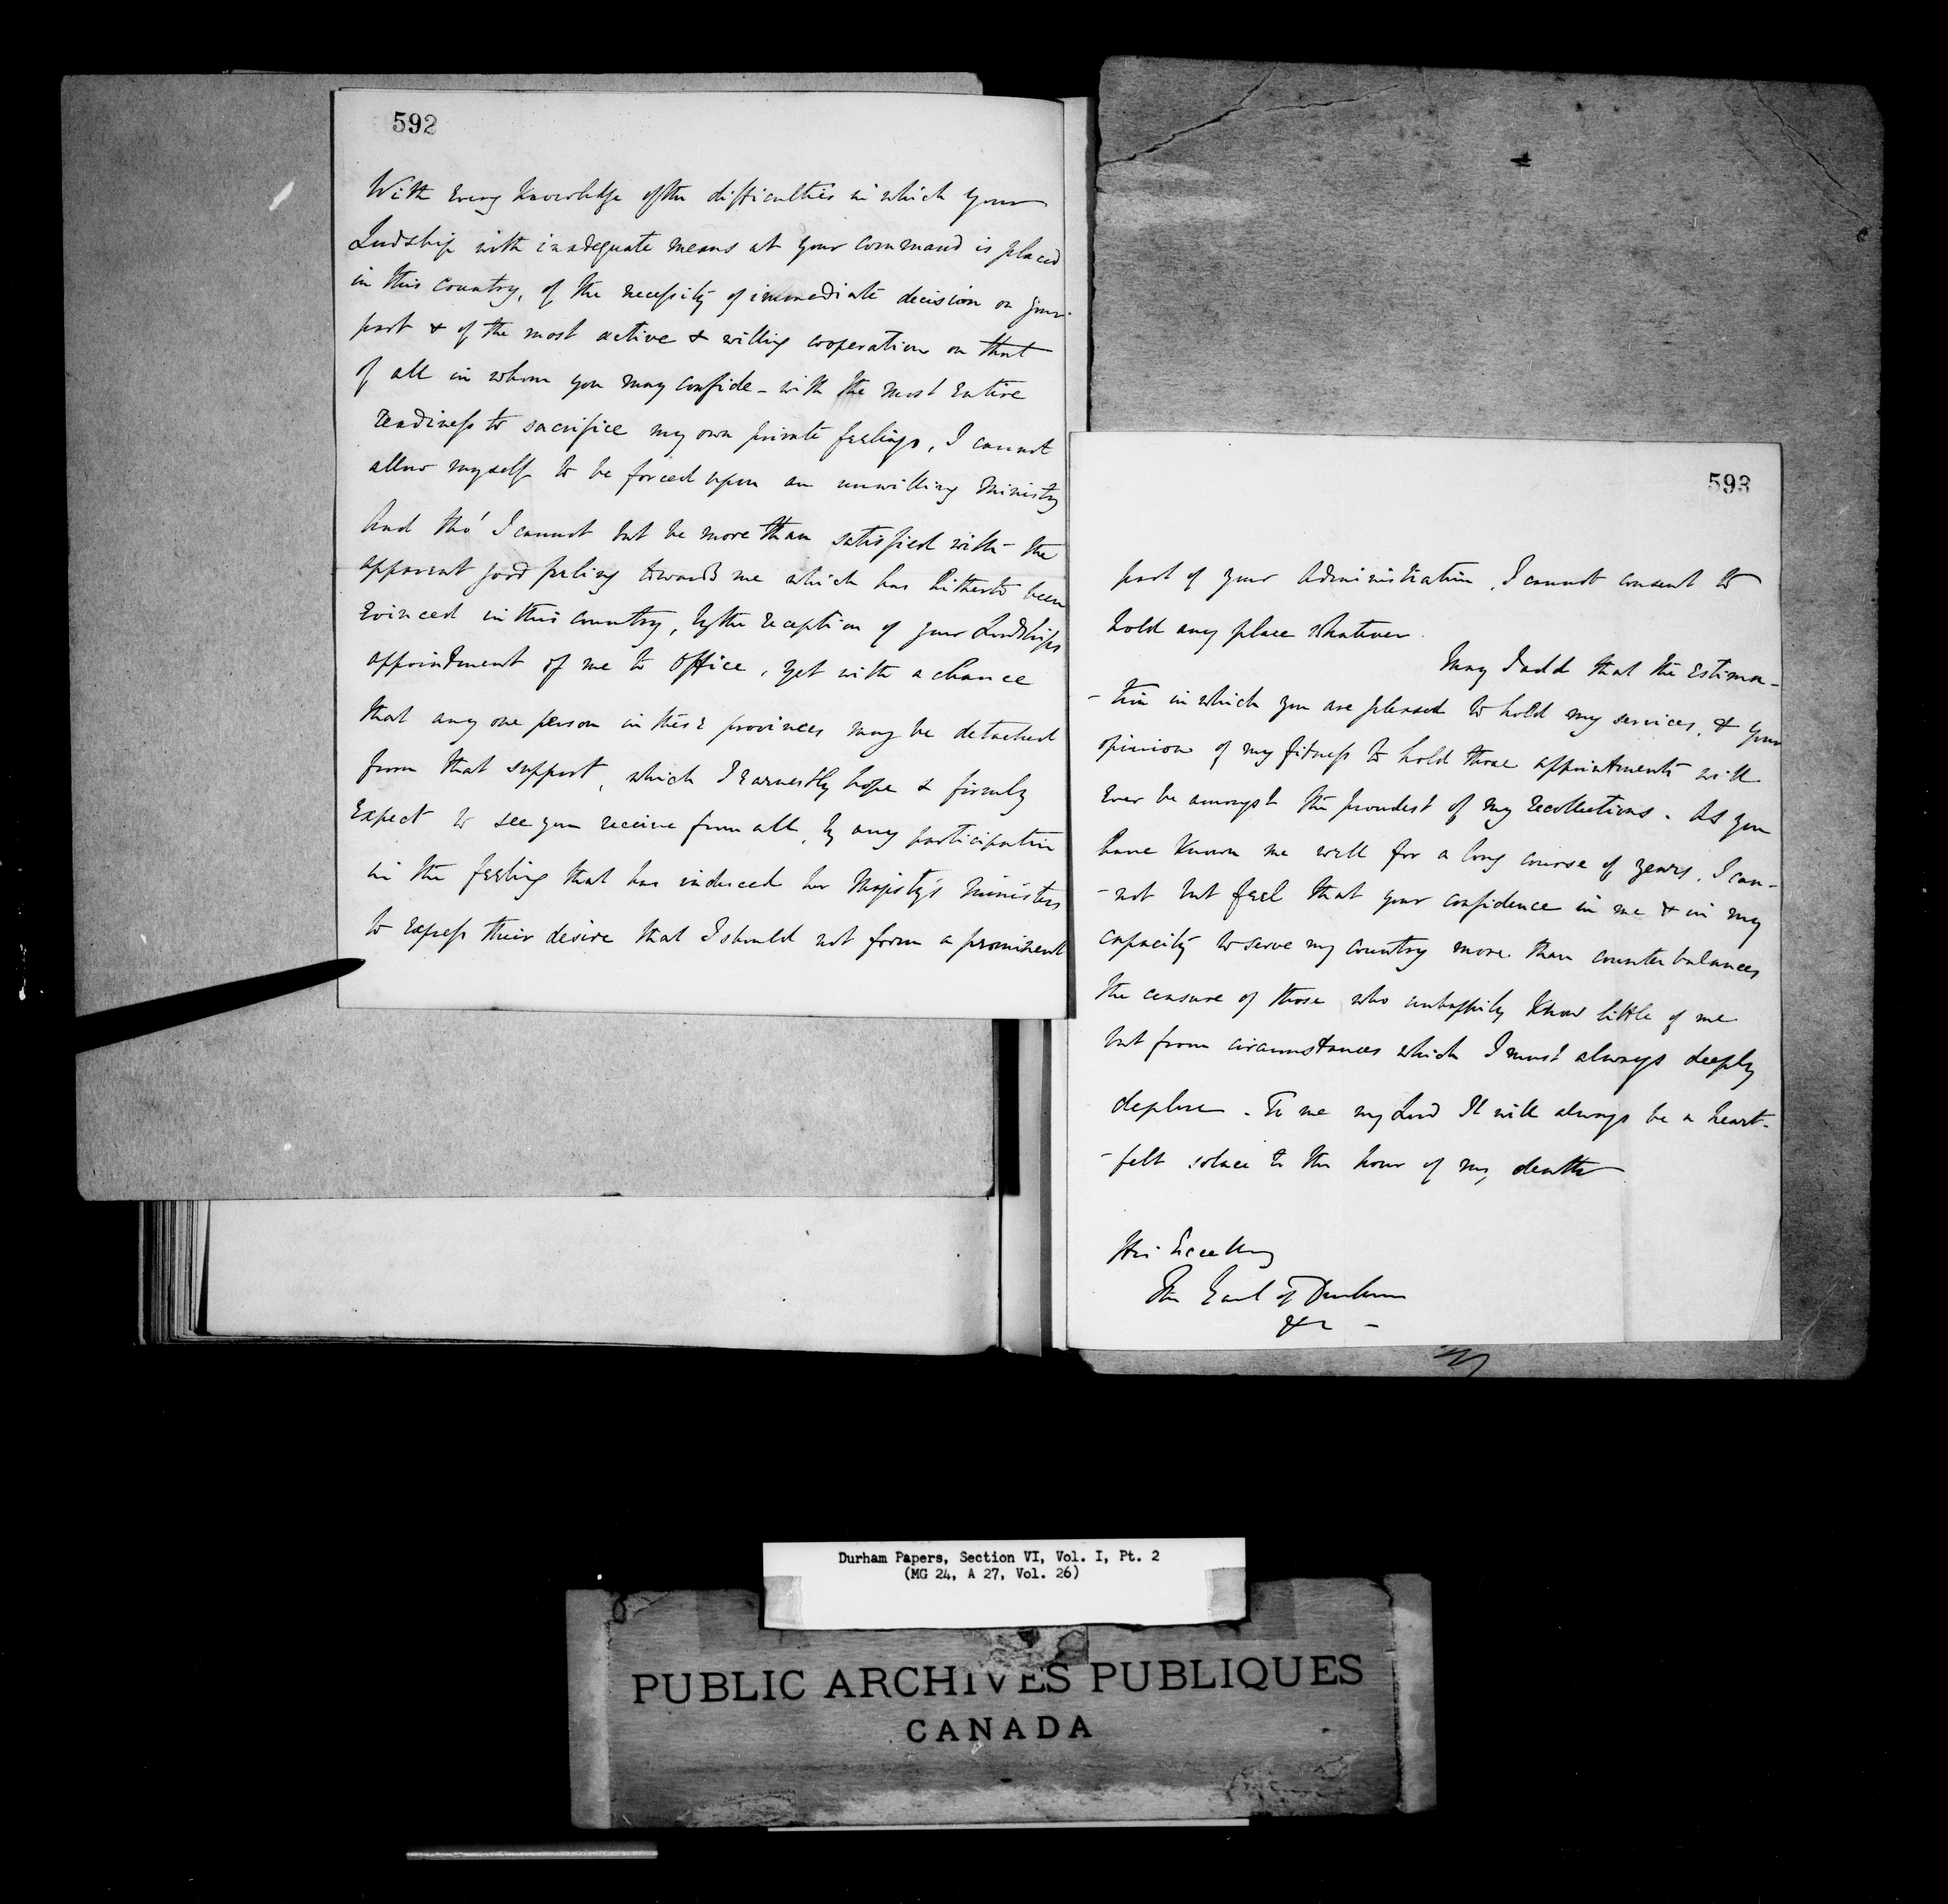 592
With every knowledge of the difficulties in which your
Lordship with inadequate means at your command is placed
in this country, of the necessity of immediate decision on your
part & of the most active & willing cooperation on that
of all in whom you may confide - with the most entire
readiness to sacrifice my own private feelings, I cannot
allow myself to be forced upon an unwilling Ministry
And tho' I cannot but be more than satisfied with the
apparent good feeling towards me which has hitherto been
evinced in this country, by the reception of your Lordships
appointment of me to office, yet with a chance
that any one person in these provinces may be detached
from that support, which I earnestly hope & firmly
expect to see you receive from all, by any participation
in the feeling that has induced her Majesty's Ministers
to express their desire that I should not form a prominent
593
part of your Administration, I cannot consent to
hold any place whatever.
May I add that the estima-
-tion in which you are pleased to hold my services, & your
opinion of my fitness to hold those appointments will
ever be amongst the proudest of my recollections. As you
have known me well for a long course of years, I can-
-not but feel that your confidence in me & in my
capacity to serve my country more than counterbalances
the censure of those who unhappily know little of me
but from circumstances which I must always deeply
deplore. To me my Lord It will always be a heart-
-felt solace to the hour of my death
His Excellency
The Earl of Durham
&c -
Durham Papers, Section VI, Vol. I, Pt. 2
(MG 24, A 27, Vol. 26)
PUBLIC ARCHIVES PUBLIQUES
CANADA